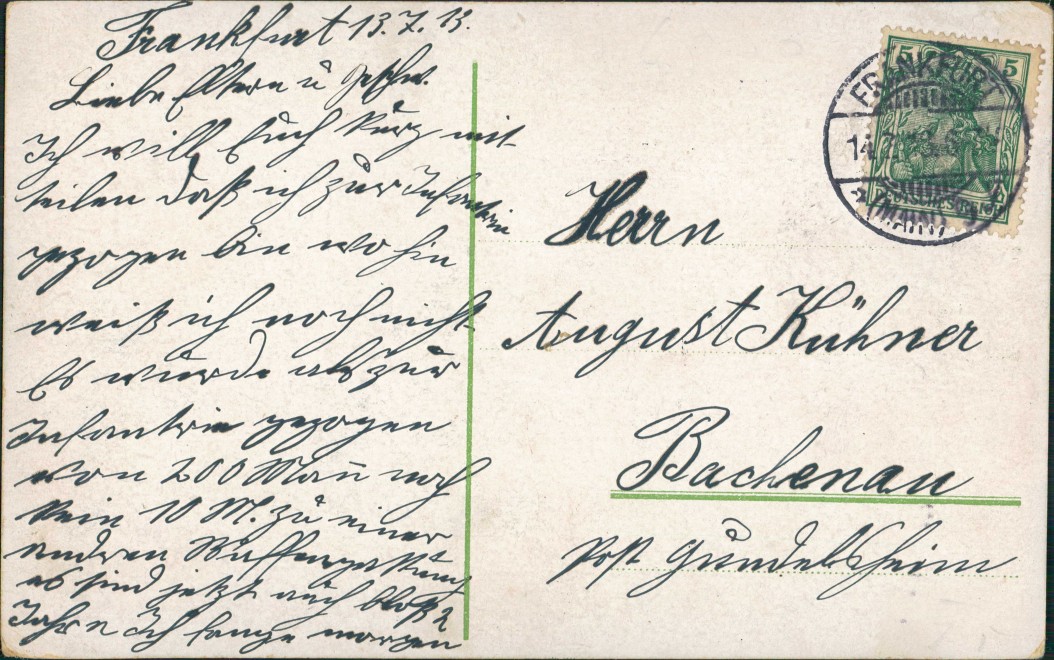 Frankfurt 13.7.13.
Liebe Eltern u Geschw.
Ich will Euch kurz mit
teilen daß ich zur Infantrie
gezogen bin wo hin
weiß ich noch nicht.
Es wurde als zur
Infantrie gezogen
von 200 Mann noch
kein 10 M. zu einer
andren Waffengattung
es sind jetzt auch bloß 2
Jahre Ich fange morgen
FRANKFURT
14.7.
(MAIN)
5 5
DEUTSCHES REICH
Herrn
August Kühner
Bachenau
Post Gundelsheim